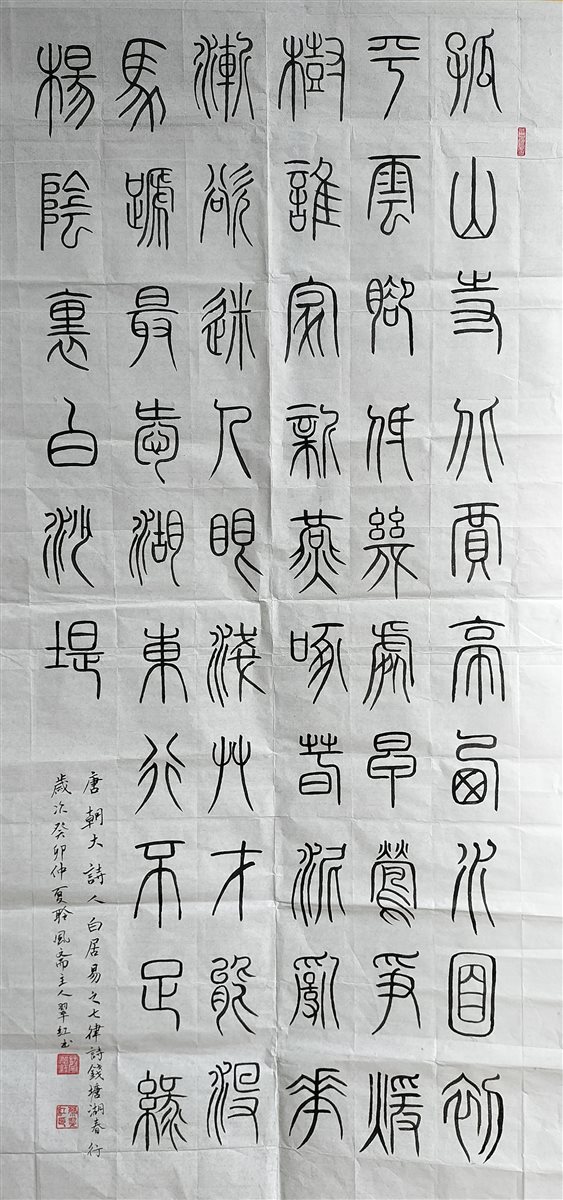 孤山寺北賈亭西水面初
平雲腳低幾處早鶯爭暖
樹誰家新燕啄春泥亂花
漸欲迷人眼淺草才能沒
馬蹏最愛湖東行不足綠
楊陰裏白沙堤
唐朝大詩人白居易之七律詩錢塘湖春行
歲次癸卯仲夏聆風斋主人翠红书